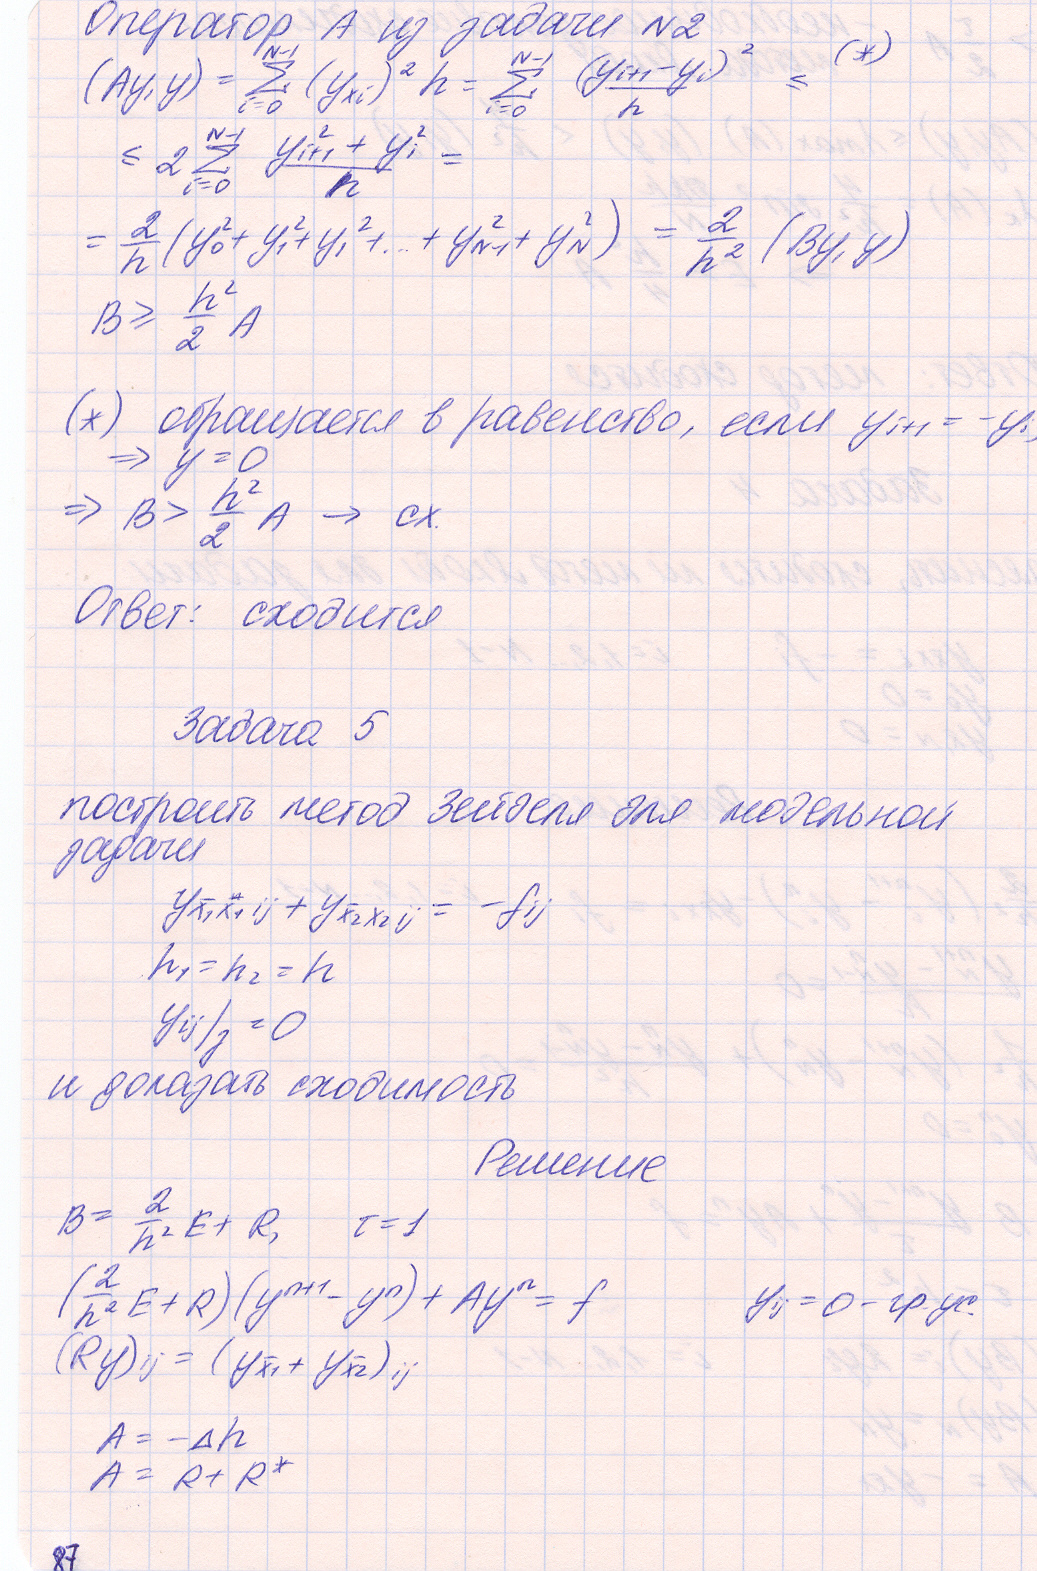 Оператор A из задачи N2
(Ay, y) = ∑_{i=0}^{N-1} (y_{xi})² h = ∑_{i=0}^{N-1} (y_{i+1} - y_i)²/h ≤ (*)
≤ 2 ∑_{i=0}^{N-1} (y_{i+1}² + y_i²)/h =
= 2/h (y_0² + y_1² + y_1² + ... + y_{N-1}² + y_N²) = 2/h² (By, y)
B ≥ h²/2 A
(*) обращается в равенство, если y_{i+1} = -y_i,
⇒ y = 0
⇒ B > h²/2 A → сх.
Ответ: сходится
Задача 5
построить метод Зейделя для модельной
задачи
y_{x̄₁x₁ ij} + y_{x̄₂x₂ ij} = -f_{ij}
h₁ = h₂ = h
y_{ij}|_γ = 0
и доказать сходимость
Решение
B = 2/h² E + R, τ = 1
(2/h² E + R)(y^{n+1} - y^n) + Ay^n = f y_{ij} = 0 - гр. ус.
(Ry)_{ij} = (y_{x̄₁} + y_{x̄₂})_{ij}
A = -Δh
A = R + R*
87